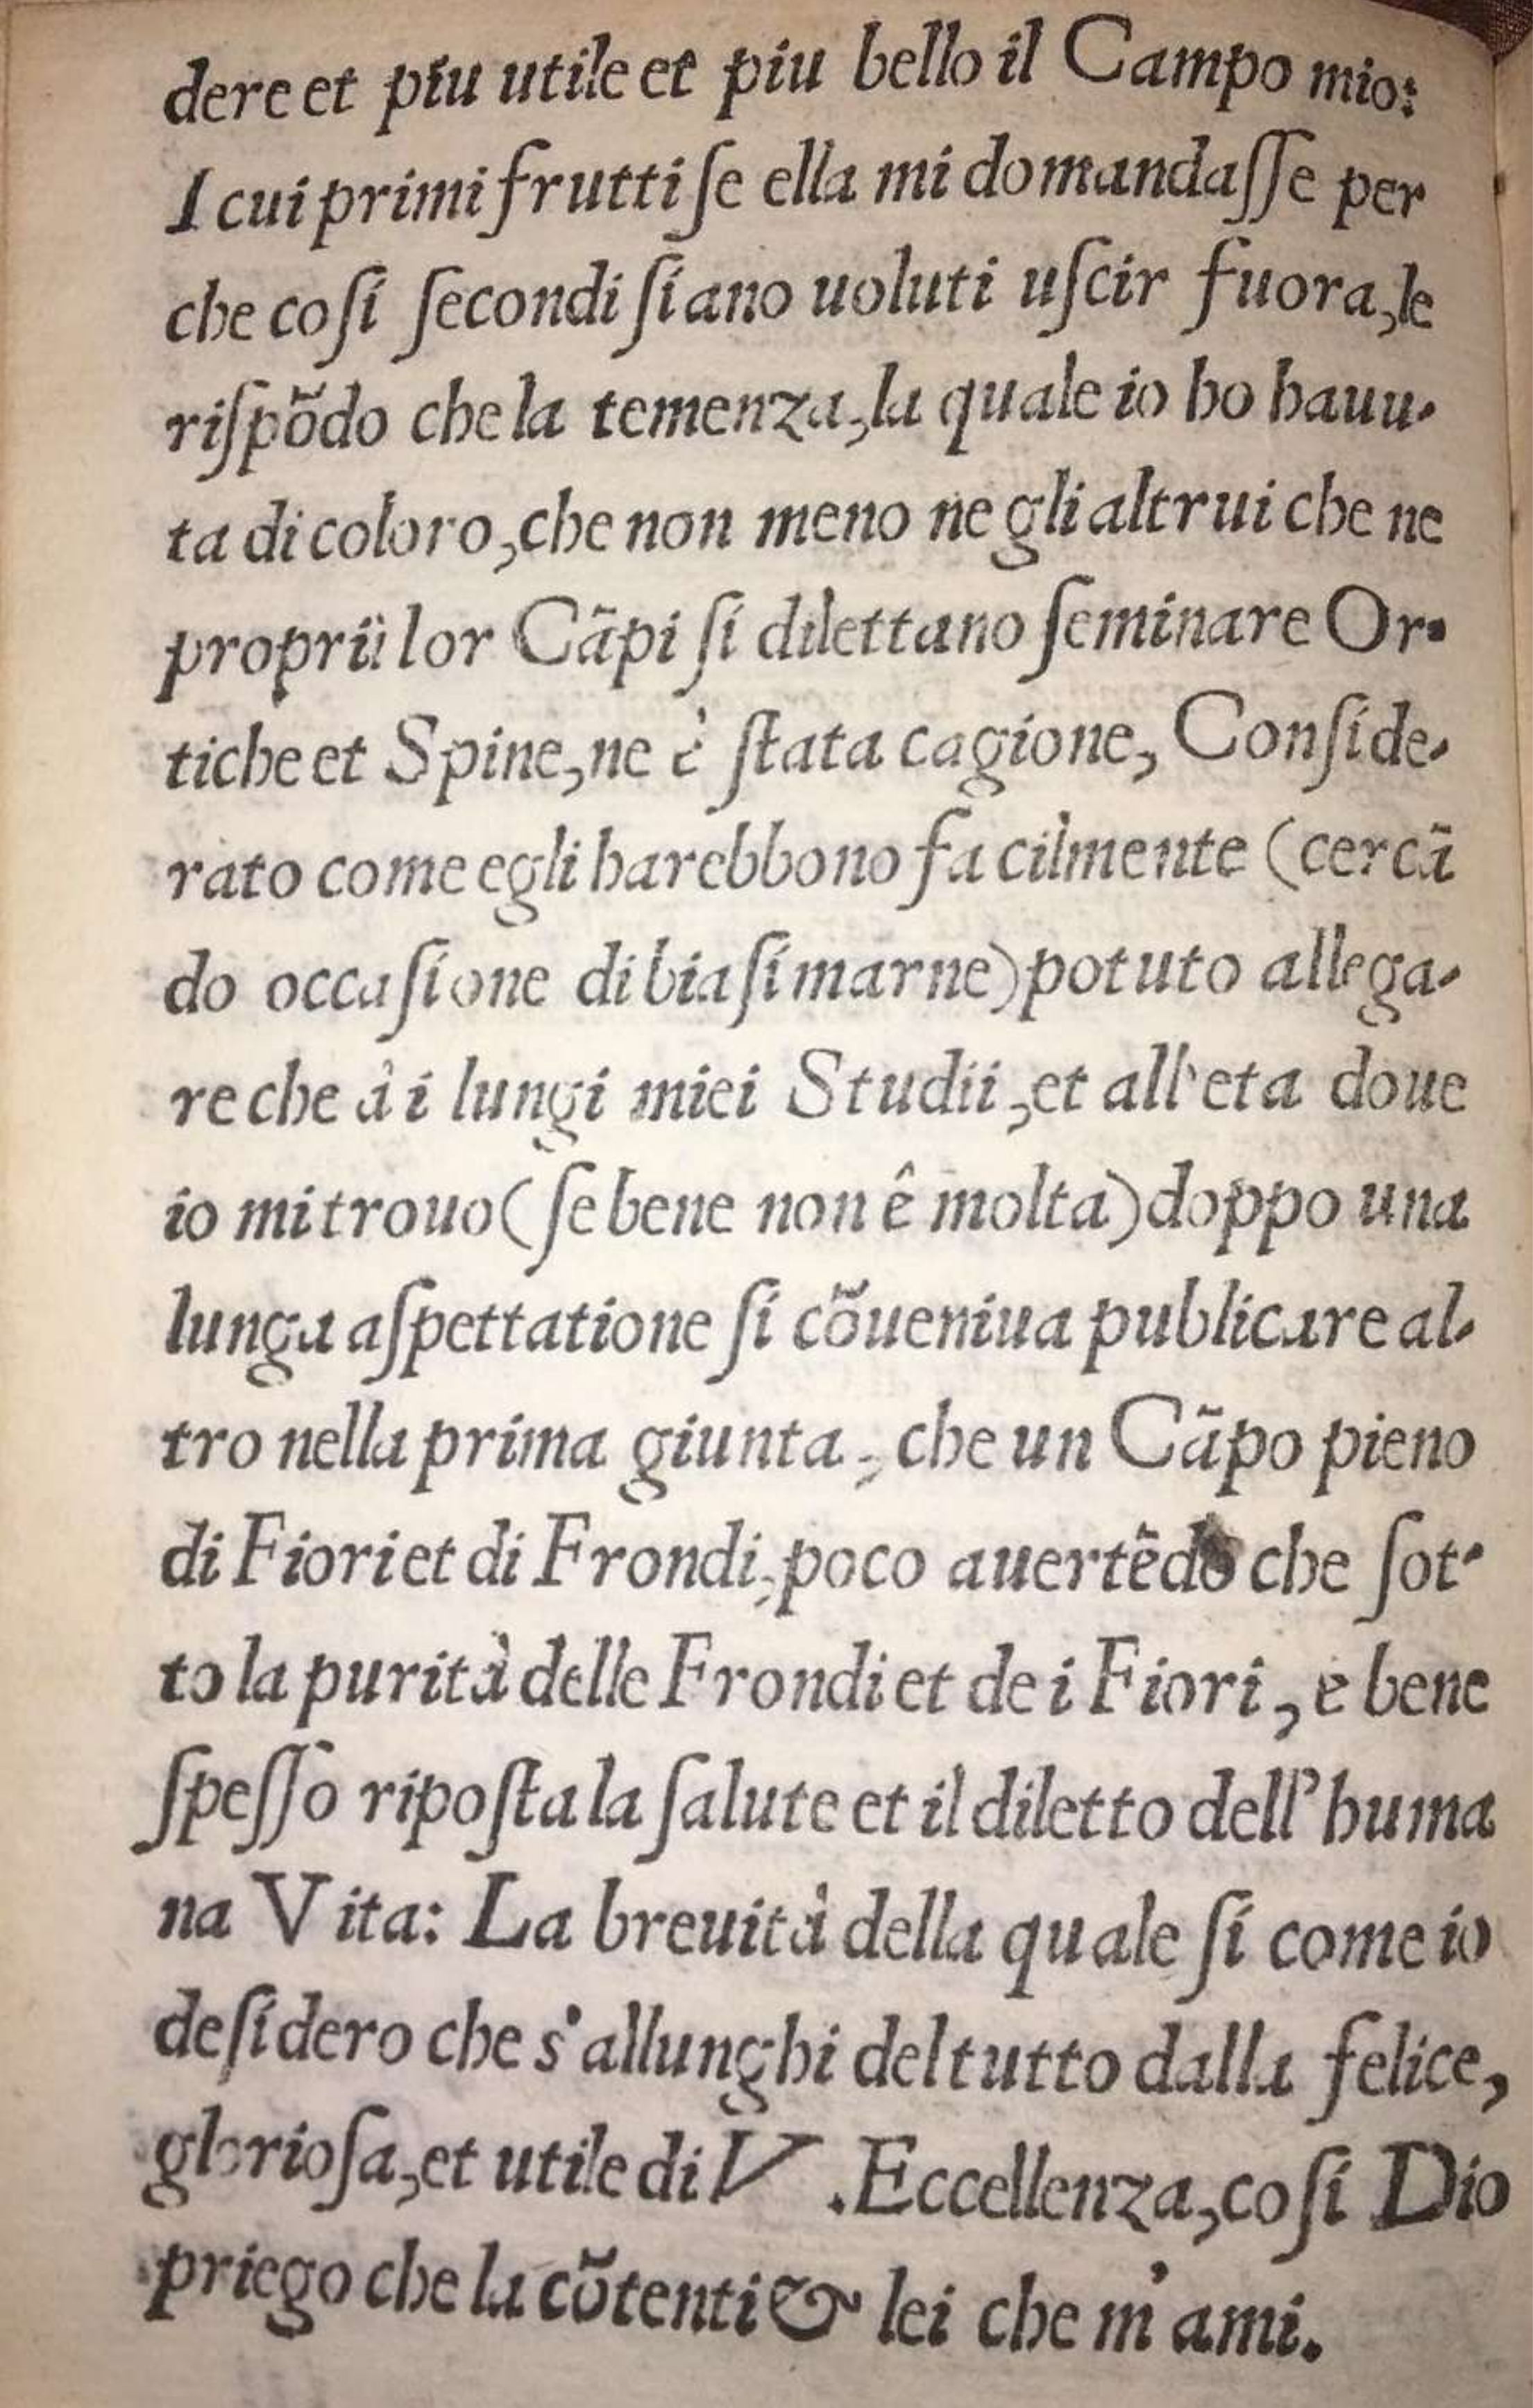 dere et piu utile et piu bello il Campo mio:
I cui primi frutti ſe ella mi domandaſſe per
che coſi ſecondi ſiano uoluti uſcir fuora, le
riſpõdo che la temenza, la quale io ho hauu-
ta di coloro, che non meno ne gli altrui che ne
proprii lor Cãpi ſi dilettano ſeminare Or-
tiche et Spine, ne è ſtata cagione, Conſide-
rato come egli harebbono facilmente (cercã
do occaſione di biaſimarne) potuto allega-
re che à i lungi miei Studii, et all'eta doue
io mi trouo (ſe bene non ê molta) doppo una
lunga aſpettatione ſi cõueniua publicare al-
tro nella prima giunta, che un Cãpo pieno
di Fiori et di Frondi, poco auertẽdo che ſot-
to la purità delle Frondi et de i Fiori, e bene
ſpeſſo ripoſta la ſalute et il diletto dell'huma
na Vita: La breuità della quale ſi come io
deſidero che s'allunghi del tutto dalla felice,
glorioſa, et utile di V. Eccellenza, coſi Dio
priego che la cõtenti & lei che m'ami.